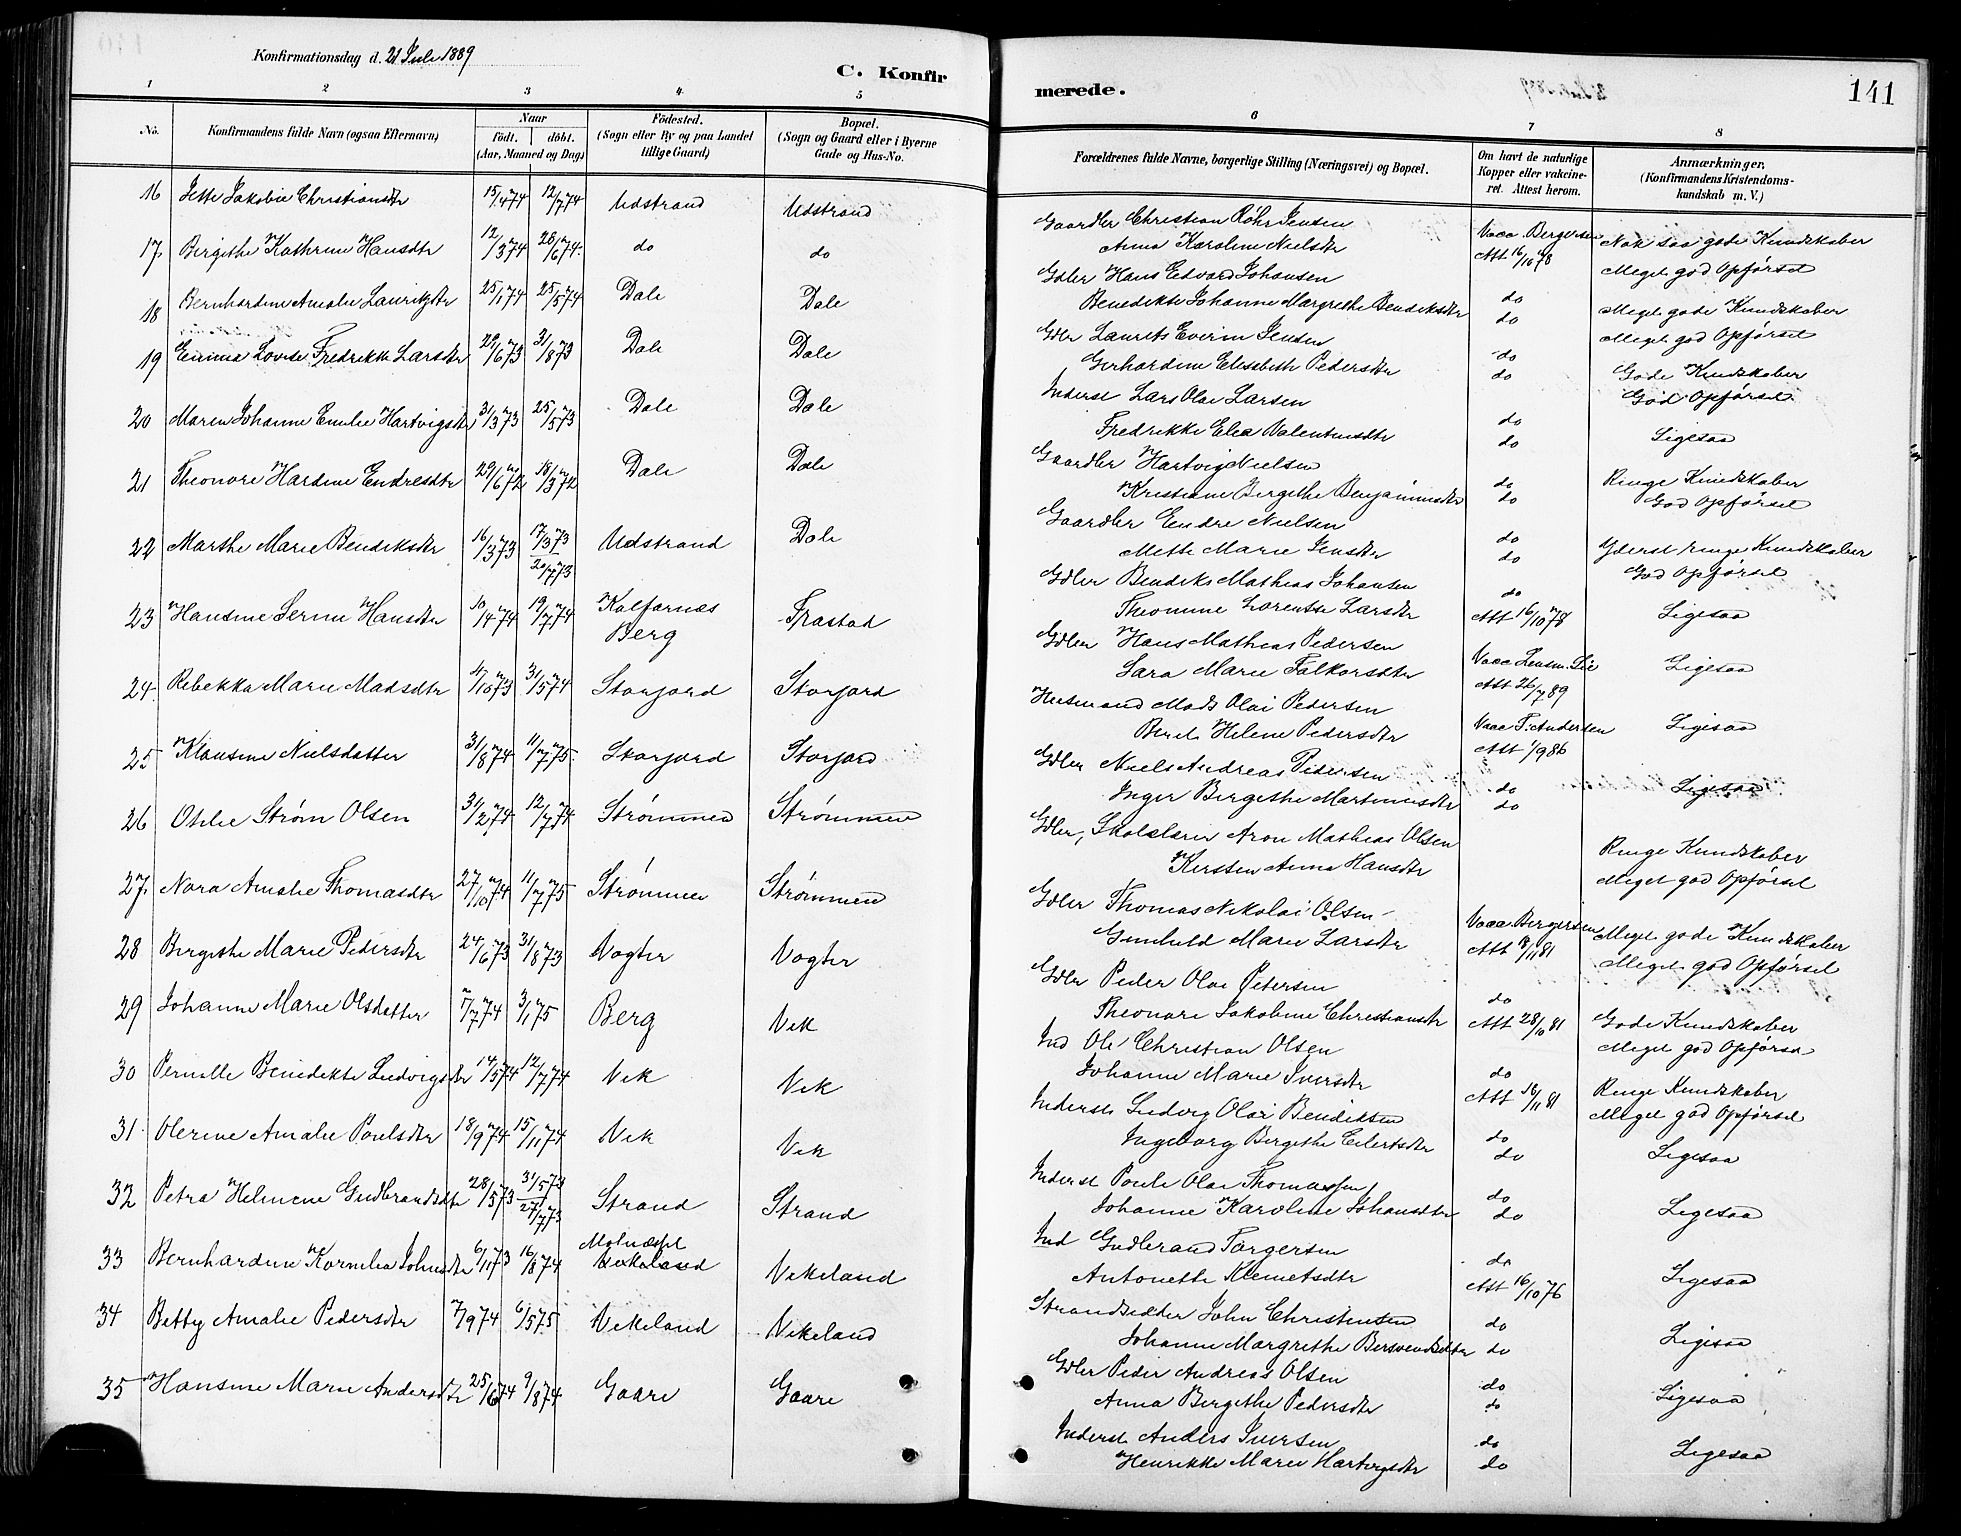 Konfirmationsdag d. 21 Juli 1889
C. Konfir
1 2 3 4 5
No.
Konfirmandens fulde Navn (ogsaa Efternavn)
Naar
födt. döbt.
(Aar, Maaned og Dag)
Födested.
(Sogn eller By og paa Landet
tillige Gaard)
Bopæl.
(Sogn og Gaard eller i Byerne
Gade og Hus-No.
16 Jette Jakobie Christiansdtr 15/4 74 12/7 74 Udstrand Udstrand
17. Bergithe Kathrine Hansdtr 12/3 74 28/6 74. do do
18 Bernhardine Amalie Lauritzdtr 25/1 74 25/5 74 Dale Dale
19 Emma Lovise Fredrikke Larsdtr 29/6 73 31/8 73 Dale Dale
20 Maren Johanne Emilie Hartvigsdtr 31/3 73 25/5 73 Dale Dale
21 Theonore Hardine Endresdtr 29/6 72 18/3 72 Dale Dale
22 Marthe Marie Bendiksdtr 16/3 73 17/3 73 20/7 73 Udstrand Dale
23 Hansine Serine Hansdtr 10/4 74 19/7 74 Kalfarnæs
Berg Frastad
24. Rebekka Marie Madsdtr 4/10 73 31/5 74 Storjord Storjord
25 Klausine Nielsdatter 31/8 74 11/7 75. Storjord Storjord
26 Othlie Strøm Olsen 31/2 74 12/7 74 Strømmen Strømmen
27. Nora Amalie Thomasdtr 27/10 74 11/7 75 Strømmen Strømmen
28 Bergithe Marie Pedersdtr 24/6 73 31/8 73 Vogter Vogter
29 Johanne Marie Olsdatter 7/7 74 3/1 75 Berg Vik
30 Pernille Benedikte Ludvigsdtr 14/5 74 12/7 74 Vik Vik
31 Olerine Amalie Poulsdtr 18/9 74 15/11 74 Vik Vik
32 Petra Helmine Gudbrandsdtr 28/5 73 31/5 73 27/7 73 Strand Strand
33 Bernhardine Kornelia Johnsdtr 6/11 73 16/8 74 Vikeland Vikeland
34 Betty Amalie Pedersdtr 7/9 74 6/5 75 Vikeland Vikeland
35 Hansine Marie Andersdtr 25/6 74 9/8 74 Gaare Gaare
merede.
141
6 7 8
Forældrenes fulde Navne, borgerlige Stilling (Næringsvei) og Bopæl.
Om havt de naturlige
Kopper eller vakcine-
ret. Attest herom.
Anmærkninger,
(Konfirmandens Kristendoms-
kundskab m. V.)
Gaardbr Christian Røhr Jensen Vacc. Bergersen Nok saa gode Kundskaber
Anna Karoline Nielsdtr Att 16/10 78 Meget god Opførsel
Gdbr Hans Edvard Johansen do Meget gode Kundskaber
Benedikte Johanne Margrethe Bendiksdtr do Meget god Opførsel
Gdbr Laurits Everin Jensen do Gode Kundskaber
Gerhardine Elisabeth Pedersdtr do God Opførsel.
Inderst Lars Olai Larsen do Ligesaa
Fredrikke Elea Valentinsdtr do
Gaardbr Hartvig Nielsen do Ringe Kundskaber
Kristiane Bergithe Benjaminsdtr do God Opførsel
Gaardbr Endre Nielsen do Yderst ringe Kundskaber
Mette Marie Jensdtr do God Opførsel
Gdbr Bendiks Mathias Johansen do Ligesaa
Theomine Lorentse Larsdtr Att 16/10 78
Gdbr Hans Mathias Pedersen Vacc Lensm. Lie Ligesaa
Sara Marie Falkorsdtr Att 26/7 89
Husmand Mads Olai Pedersen Vacc T. Andersen Ligesaa
Beret Helene Pedersdtr Att 1/9 86
Gdbr Niels Andreas Pedersen do Ligesaa
Inger Bergithe Martinusdtr do
Gdbr, Skolelærer Aron Mathias Olsen Ringe Kundskaber
Kirsten Anna Hansdtr Meget god Opførsel
Gdbr Thomas Nikolai Olsen Vacc Bergersen Meget gode Kundskaber
Gunhild Marie Larsdtr Att 18/11 81 Meget god Opførsel
Gdbr Peder Olai Petersen do Gode Kundskaber
Theonore Jakobine Christiansdtr Att 28/10 81 Meget god Opførsel
Ind Ole Christian Olsen do Ringe Kundskaber
Johanne Marie Iversdtr Att 16/11 81 Meget god Opførsel
Inderst Ludvig Olai Bendiksen do Ligesaa
Ingeborg Bergithe Eilertsdtr do
Inderst Poule Olai Thomassen do Ligesaa
Johanne Karoline Johansdtr do
Ind Gudbrand Torgersen do Ligesaa
Antonette Klemetsdtr Att 16/10 76
Strandsidder John Christensen do Ligesaa
Johanne Margrethe Bersvendsdtr do
Gdbr Peder Andreas Olsen do Ligesaa
Anna Bergithe Pedersdtr do
Inderst Anders Iversen do Ligesaa
Henrikke Marie Hartvigsdtr do